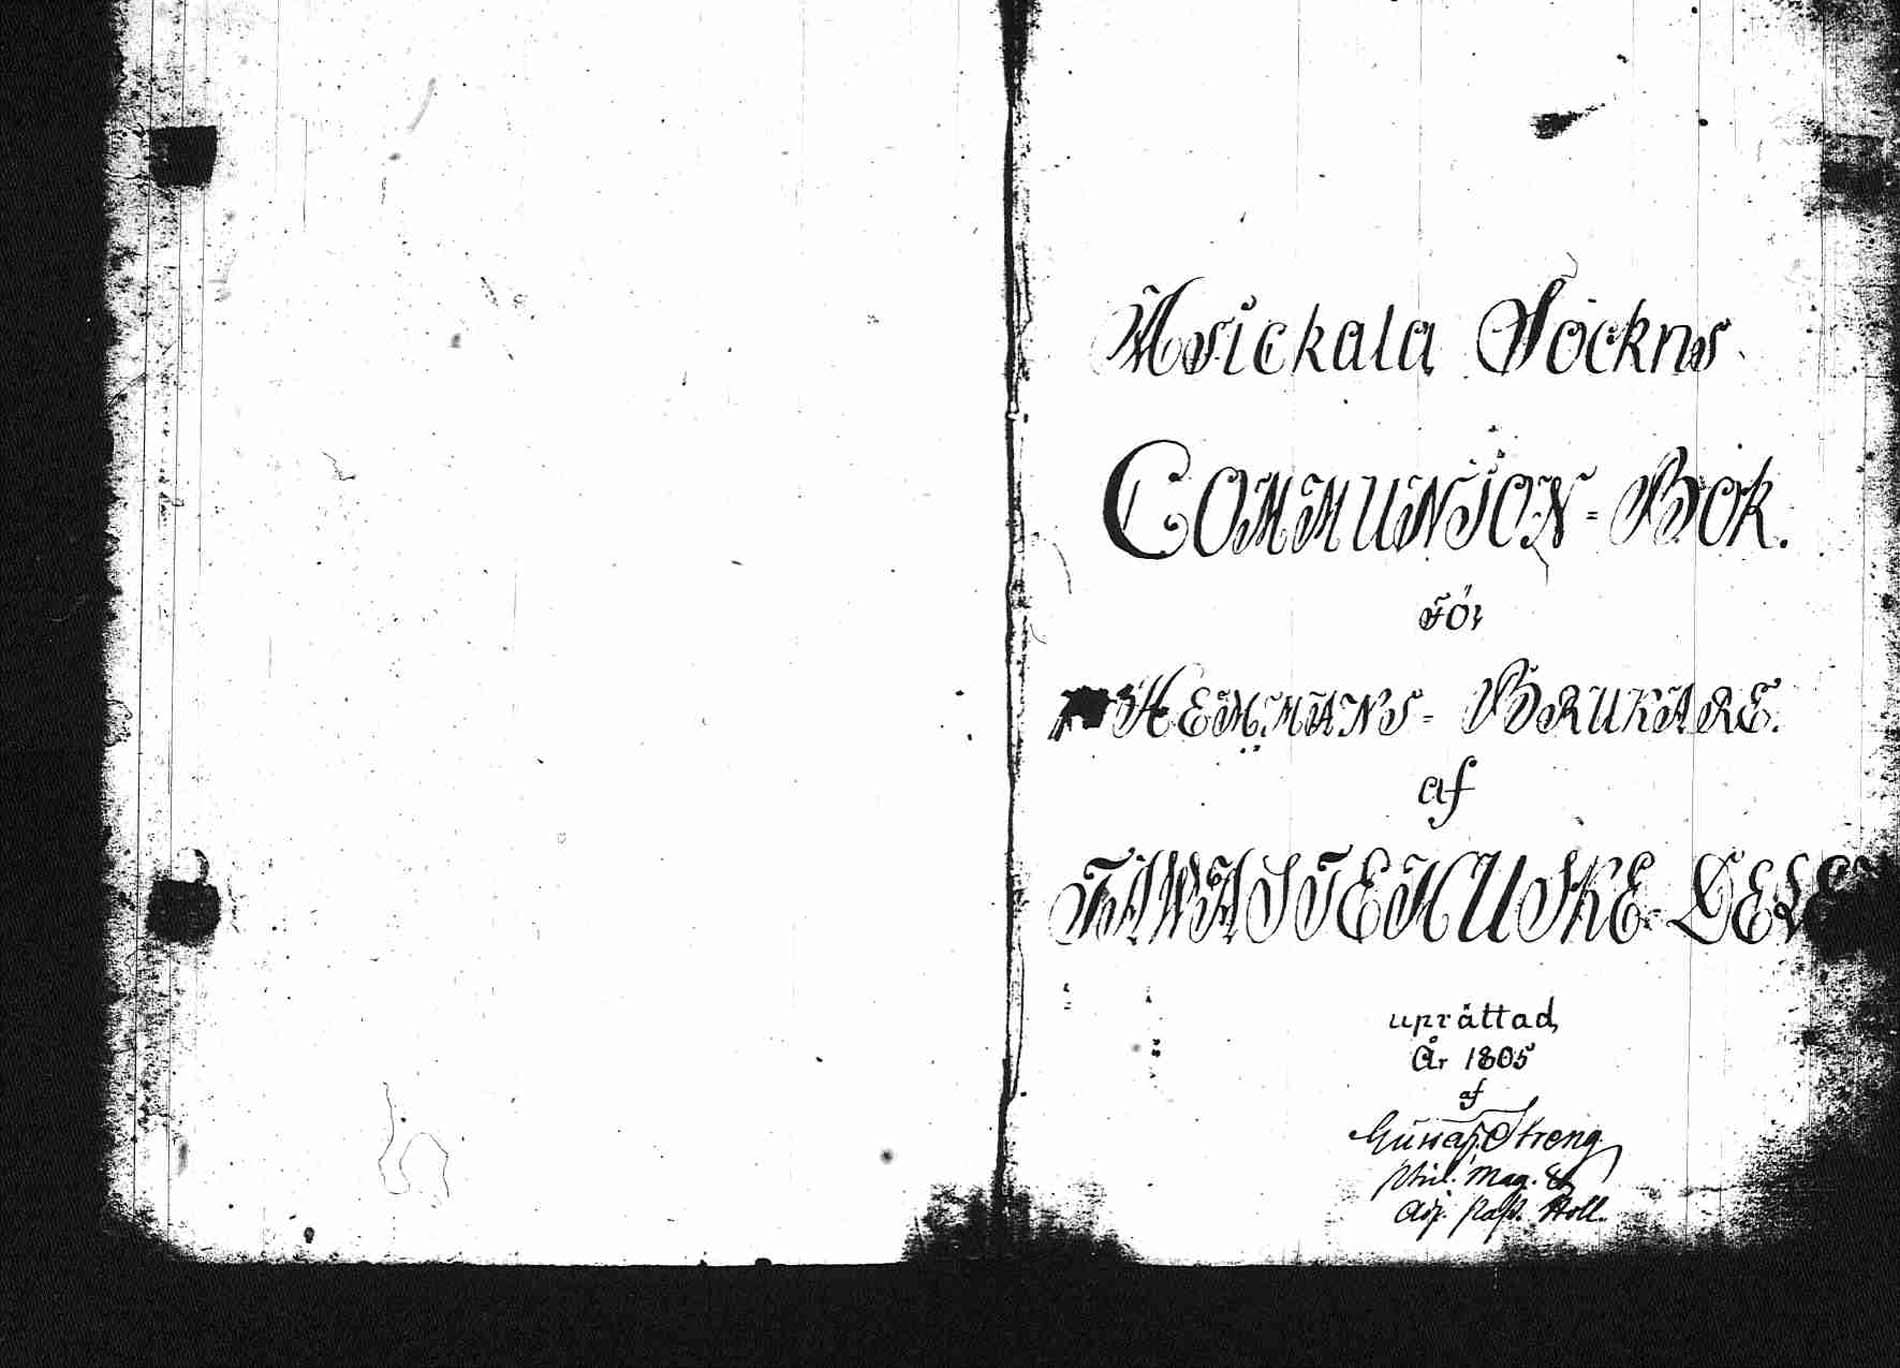 Asickala Sockns
COMMUNION=BOK.
FÖR
HEMMANS=BRUKARE.
af
TAWASTEHUSKE=DELE
uprättad,
År 1805
af
Gustaf Streng
Phil. Mag. &
Adj. Past. Holl.